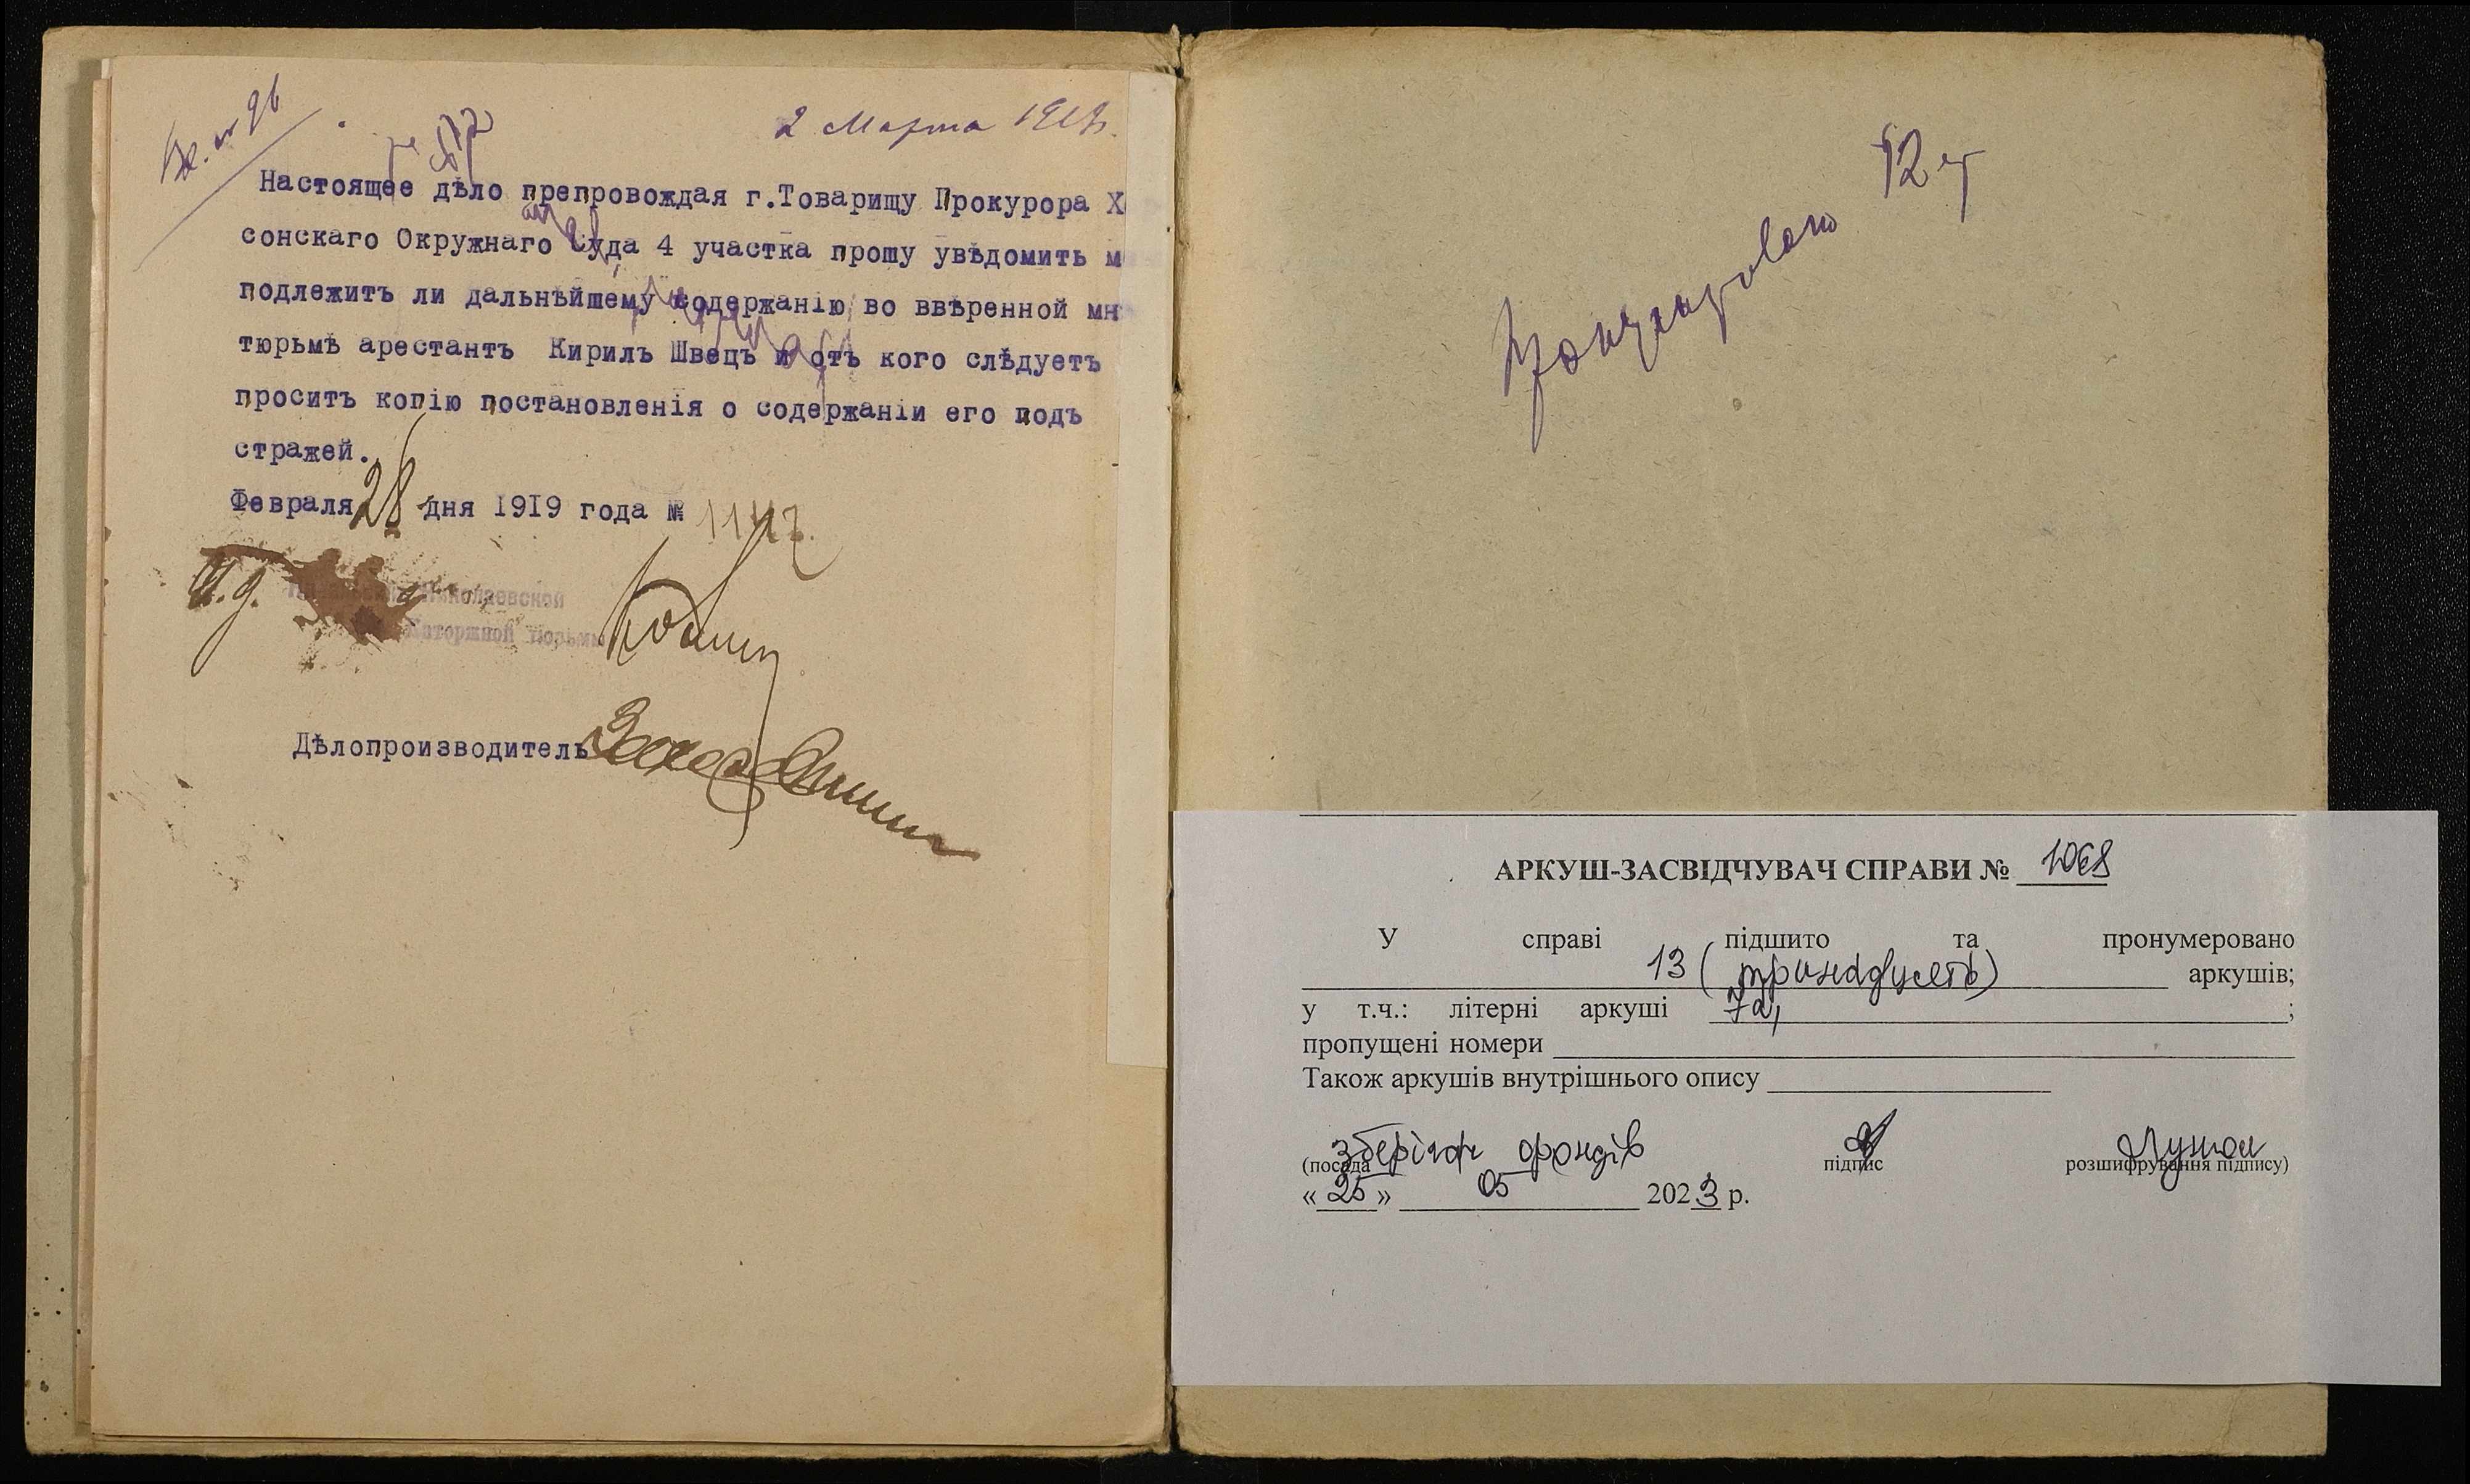 Вх. № 96
2 Марта 1919.
Настоящее дѣло препровождая г.Товарищу Прокурора Х
сонскаго Окружнаго Суда 4 участка прошу увѣдомить м
подлежитъ ли дальнѣйшему содержанію во ввѣренной мн
тюрьмѣ арестантъ Кирилъ Швецъ и отъ кого слѣдуетъ
просить копію постановленія о содержаніи его подъ
стражей.
Февраля 28 дня 1919 года № 1147.
И.д. Николаевской
Каторжной тюрьмы
Дѣлопроизводитель
Пронумеровано 12
АРКУШ-ЗАСВІДЧУВАЧ СПРАВИ № 1068
У справі підшито та пронумеровано
13 (тринадцять) аркушів;
у т.ч.: літерні аркуші 7а,;
пропущені номери
Також аркушів внутрішнього опису
зберігач фондів
(посада підпис розшифрування підпису)
«25» 05 2023 р.